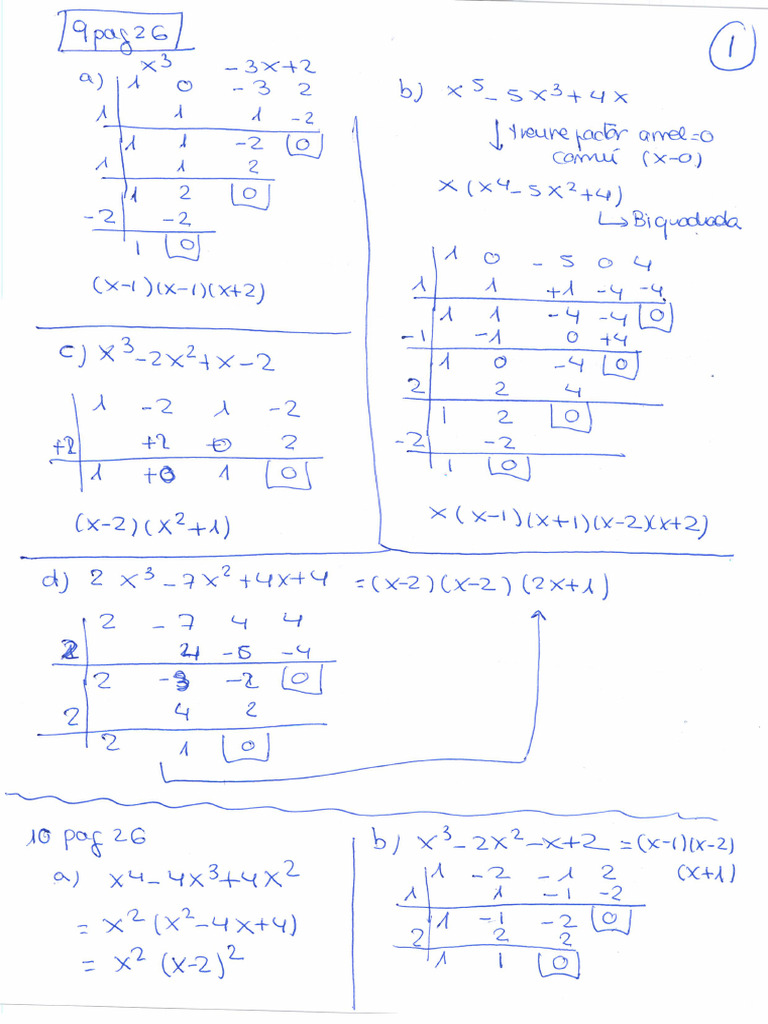 9 pag 26
1
a) x³ - 3x + 2
1 0 - 3 2
1 1 1 -2
1 1 -2 0
1 1 2
1 2 0
-2 -2
1 0
(x-1)(x-1)(x+2)
b) x⁵ - 5x³ + 4x
↓ treure factor arrel=0
comú (x-0)
x(x⁴-5x²+4)
↳ Biquadrada
1 0 - 5 0 4
1 1 +1 -4 -4
1 1 -4 -4 0
-1 -1 0 +4
1 0 -4 0
2 2 4
1 2 0
-2 -2
1 0
x(x-1)(x+1)(x-2)(x+2)
c) x³ - 2x² + x - 2
1 -2 1 -2
+2 +2 0 2
1 +0 1 0
(x-2)(x²+1)
d) 2x³ - 7x² + 4x + 4 = (x-2)(x-2)(2x+1)
2 - 7 4 4
2 4 -6 -4
2 -3 -2 0
2 4 2
2 1 0
10 pag 26
a) x4 - 4x³ + 4x²
= x² (x² - 4x + 4)
= x² (x-2)²
b) x³ - 2x² - x + 2 = (x-1)(x-2)
(x+1)
1 -2 -1 2
1 1 -1 -2
1 -1 -2 0
2 2 2
1 1 0